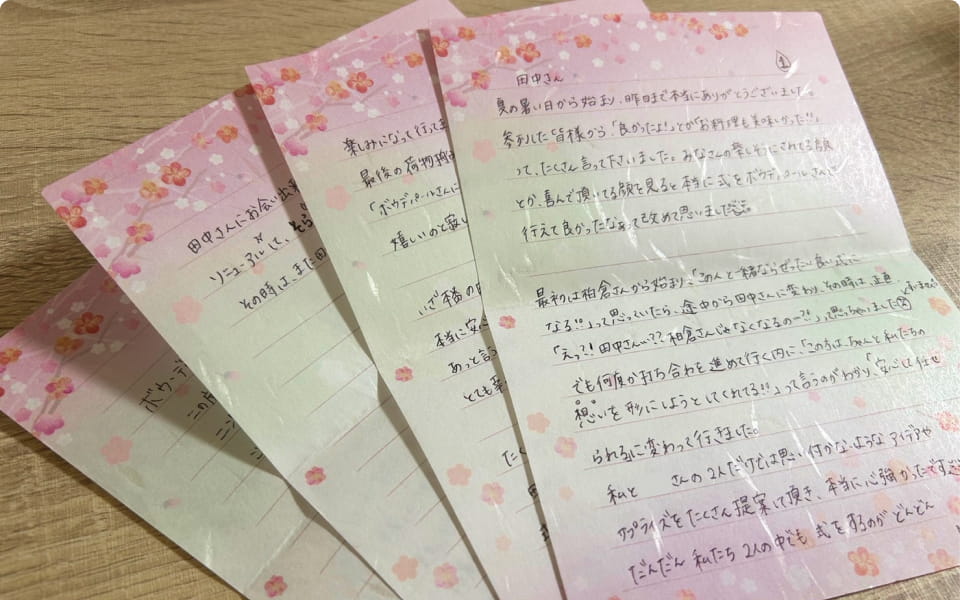 ①
田中さん
夏の暑い日から始まり、昨日まで本当にありがとうございました。
参列した皆様から、「良かったよ!」とか「お料理も美味しかった!!」
って、たくさん言って下さいました。みなさんの楽しそうにされてる顔
とか、喜んで頂いてる顔を見ると本当に式をボウディパールさんで
行えて良かったなぁって改めて思いました
最初は相倉さんから始まり、「この人と一緒ならぜったい良い式に
なる!!」って思っていたら、途中から田中さんに変わり、その時は、正直
「えっ?! 田中さん…?? 相倉さんじゃなくなるのー?!」って思っちゃいました
でも何度か打ち合わせを進めて行く内に、「この方は、ちゃんと私たちの
想いを形にしようとしてくれてる!!」って言うのがわかり、「安心して任せ
られる」に変わって行きました。
私と さんの2人だけでは思い付かないようなアイデアや
サプライズをたくさん提案して頂き、本当に心強かったです
だんだん 私たち 2人の中でも 式をするのが どんどん
楽しみになって行って
最後の荷物搬
「ボウディパールさんに
嬉しいのと寂し
いざ本番の
本当に安心
あっと言う
とても楽
たく
田中さんにお会い出来
リニューアルして、そち
その時は、また田
ボウディ
この